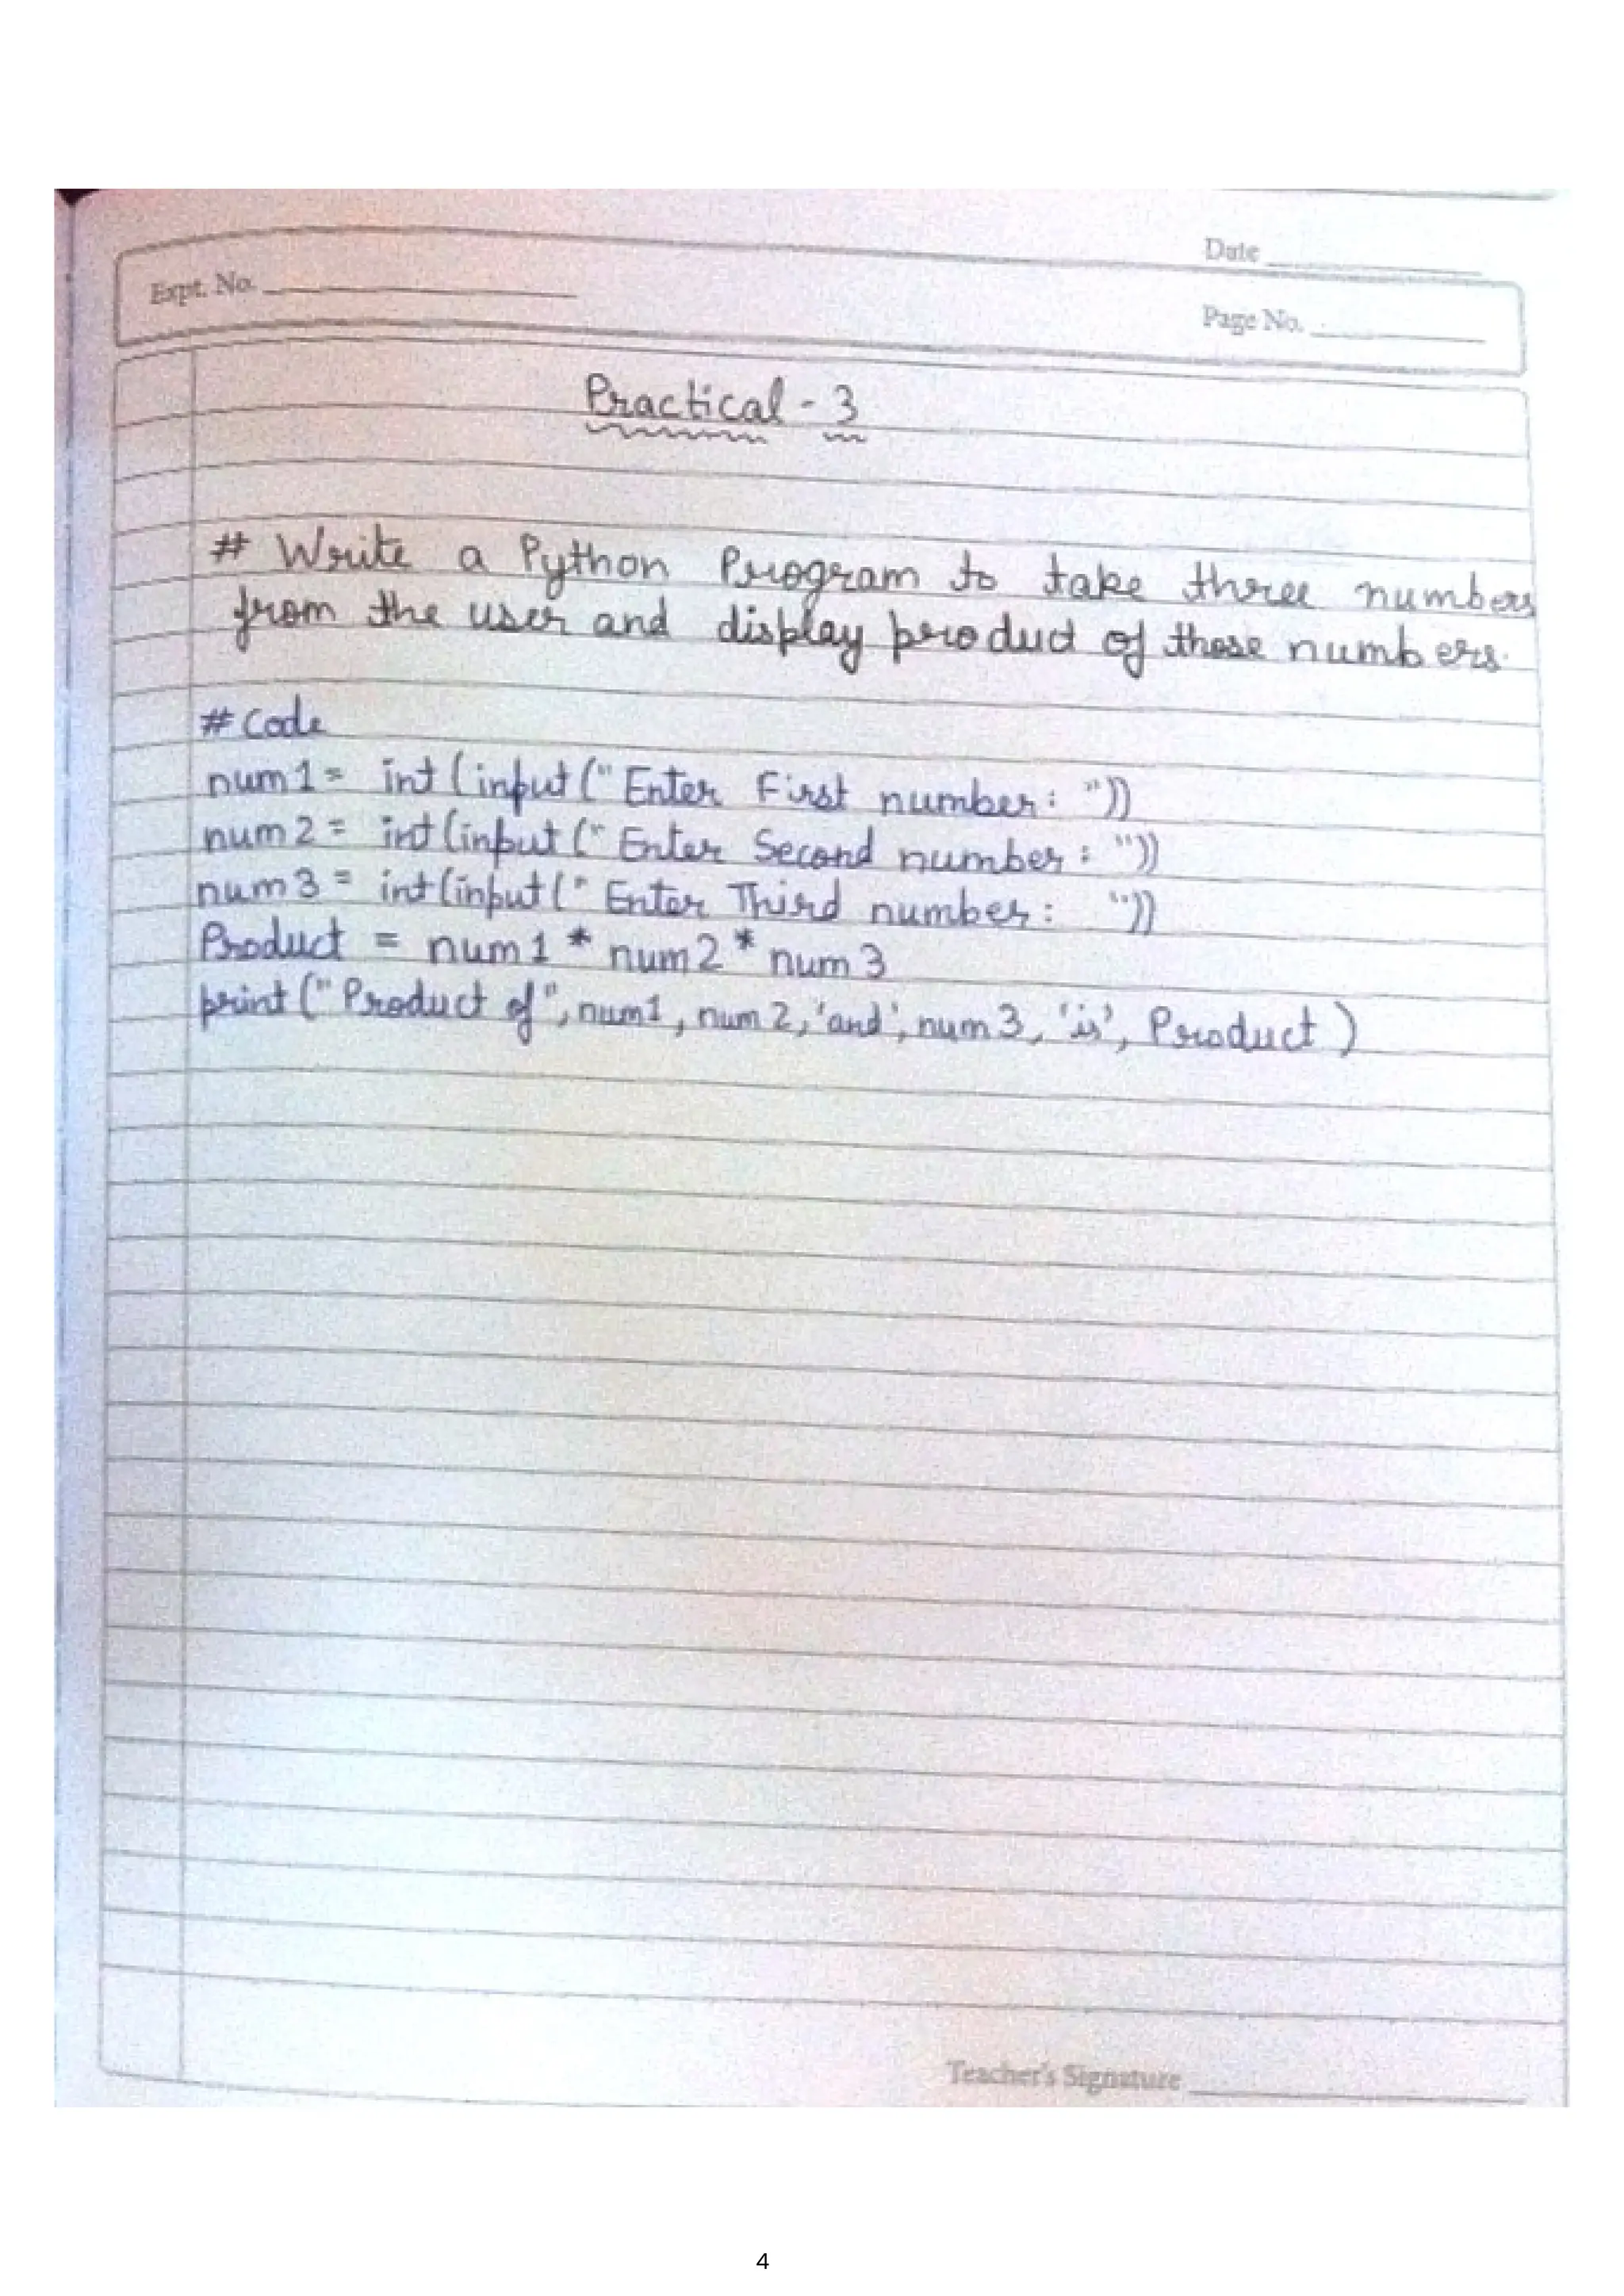 Date
Expt. No.
Page No.
Practical - 3
# Write a Python Program to take three numbers
from the user and display product of these numbers.
# Code
num1 = int(input("Enter First number: "))
num2 = int(input("Enter Second number: "))
num3 = int(input("Enter Third number: "))
Product = num1 * num2 * num3
print("Product of", num1, num2, 'and', num3, 'is', Product)
Teacher's Signature
4